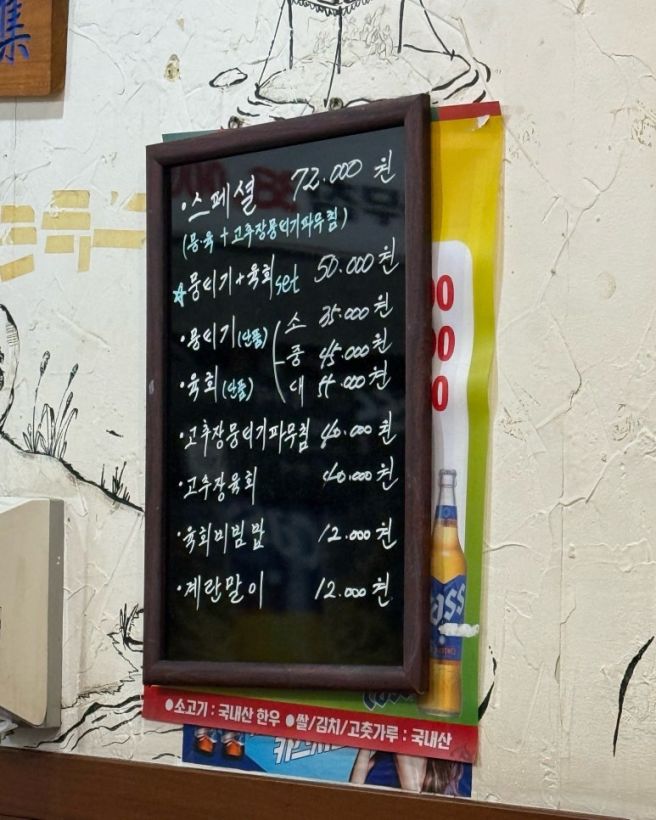 集
·스페셜 72.000원
(뭉·육 + 고추장뭉티기파무침)
☆뭉티기+육회set 50.000원
·뭉티기(단품) 소 35.000원
중 45.000원
·육회(단품) 대 55.000원
·고추장뭉티기파무침 40.000원
·고추장육회 40.000원
·육회비빔밥 12.000원
·계란말이 12.000원
ass
●소고기 : 국내산 한우 ●쌀/김치/고춧가루 : 국내산